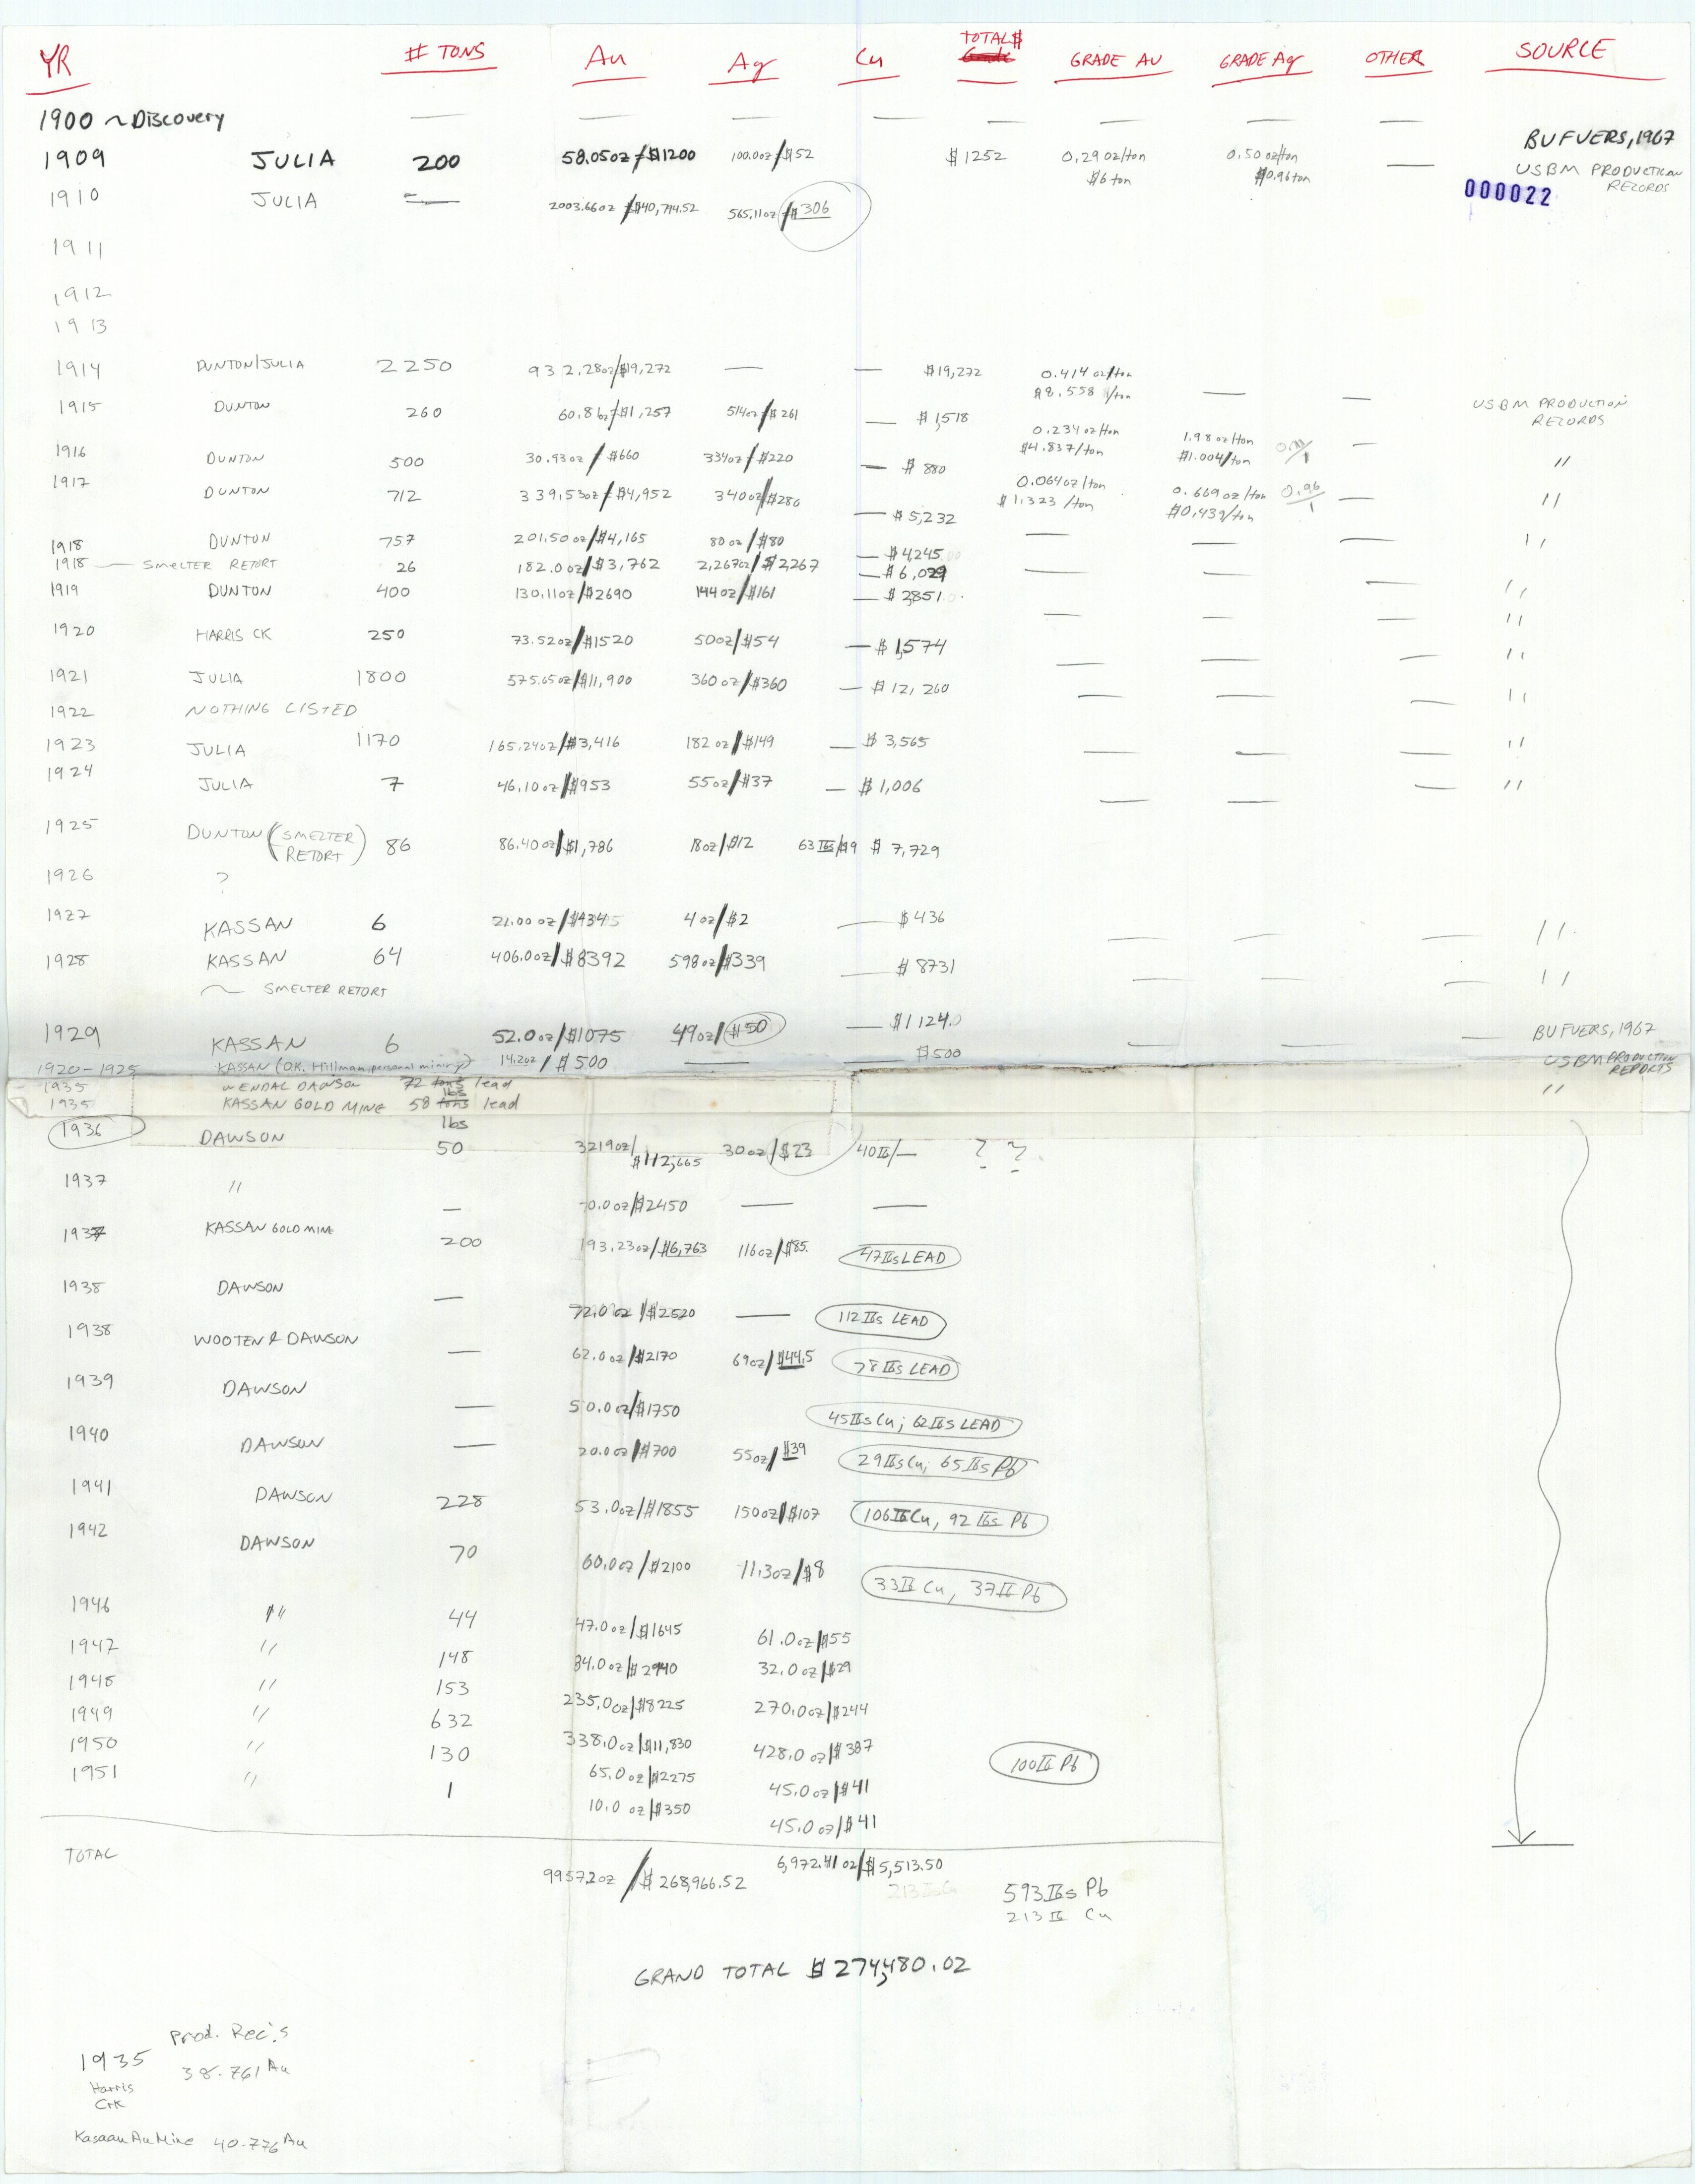 YR # TONS Au Ag Cu TOTAL $ GRADE AU GRADE Ag OTHER SOURCE
1900 ~ DISCOVERY — — — — — — — —
BUFVERS, 1967
1909 JULIA 200 58.05oz/$1200 100.0oz/$52 $1252 0.29 oz/ton 0.50 oz/ton — USBM PRODUCTION RECORDS
$6 ton $0.96 ton
000022
1910 JULIA — 2003.66oz/$40,794.52 565.11oz/$306
1911
1912
1913
1914 DUNTON/JULIA 2250 932.28oz/$19,272 — — $19,272 0.414 oz/ton
$8.558 /ton — —
1915 DUNTON 260 60.8oz/$1,257 514oz/$261 — $1,518 USBM PRODUCTION RECORDS
0.234 oz/ton 1.98 oz/ton
$4.837/ton $1.004/ton —
1916 DUNTON 500 30.93oz/$660 334oz/$220 — $880 "
0.064oz/ton 0.669 oz/ton 0.96/1
$1.323 /ton $0.439/ton —
1917 DUNTON 712 339.53oz/$4,952 340oz/$280 — $5,232 "
1918 DUNTON 757 201.50 oz/$4,165 80 oz/$80 — $4245 — — — "
1918 — SMELTER RETORT 26 182.0oz/$3,762 2,267oz/$2,267 — $6,029 — —
1919 DUNTON 400 130.11oz/$2690 144 oz/$161 — $2851 — "
— — — "
1920 HARRIS CK 250 73.52oz/$1520 50oz/$54 — $1,574
— — — "
1921 JULIA 1800 575.65oz/$11,900 360 oz/$360 — $12,260
— — — "
1922 NOTHING LISTED
1923 JULIA 1170 165.24oz/$3,416 182 oz/$149 — $3,565 — — — "
1924 JULIA 7 46.10 oz/$953 55oz/$37 — $1,006 — — — "
1925 DUNTON (SMELTER RETORT) 86 86.40 oz/$1,786 18oz/$12 63 lbs/$9 $7,729
1926 ?
1927 KASSAN 6 21.00 oz/$434 4 oz/$2 — $436 — — — "
1928 KASSAN 64 406.0oz/$8392 598 oz/$339 — $8731 — — — "
~ SMELTER RETORT
1929 KASSAN 6 52.0oz/$1075 49oz/$50 — $1124.0 — — — BUFVERS, 1967
1920-1925 KASSAN (O.K. Hillman, personal mining) 14.2oz/$500 — $500 USBM PRODUCTION REPORTS
1935 WENDAL DAWSON 72 tons lbs lead "
1935 KASSAN GOLD MINE 58 tons lbs lead
1936 DAWSON 50 3219oz/$112,665 30oz/$23 40 lb/— ? ?
1937 " — 70.0oz/$2450 — —
1937 KASSAN GOLD MINE 200 193.23oz/$6,763 116oz/$85. 47 lbs LEAD
1938 DAWSON — 72.0 oz/$2520 — 112 lbs LEAD
1938 WOOTEN & DAWSON — 62.0oz/$2170 69oz/$44.5 78 lbs LEAD
1939 DAWSON — 50.0oz/$1750 45 lbs Cu; 62 lbs LEAD
1940 DAWSON — 20.0oz/$700 55oz/$39 29 lbs Cu; 65 lbs Pb
1941 DAWSON 228 53.0oz/$1855 150oz/$107 106 lb Cu, 92 lbs Pb
1942 DAWSON 70 60.0oz/$2100 11.3oz/$8 33 lb Cu, 37 lb Pb
1946 " 44 47.0oz/$1645 61.0oz/$55
1947 " 148 84.0oz/$2940 32.0oz/$29
1948 " 153 235.0oz/$8225 270.0oz/$244
1949 " 632 338.0oz/$11,830 428.0 oz/$387
1950 " 130 65.0oz/$2275 45.0oz/$41 100 lb Pb
1951 " 1 10.0 oz/$350 45.0oz/$41
TOTAL 9957.2oz/$268,966.52 6,972.41 oz/$5,513.50
213 lb Cu 593 lbs Pb
213 lb Cu
GRAND TOTAL $274,480.02
Prod. Rec's
1935 38.761 Au
Harris
Crk
Kasaan Au Mine 40.776 Au